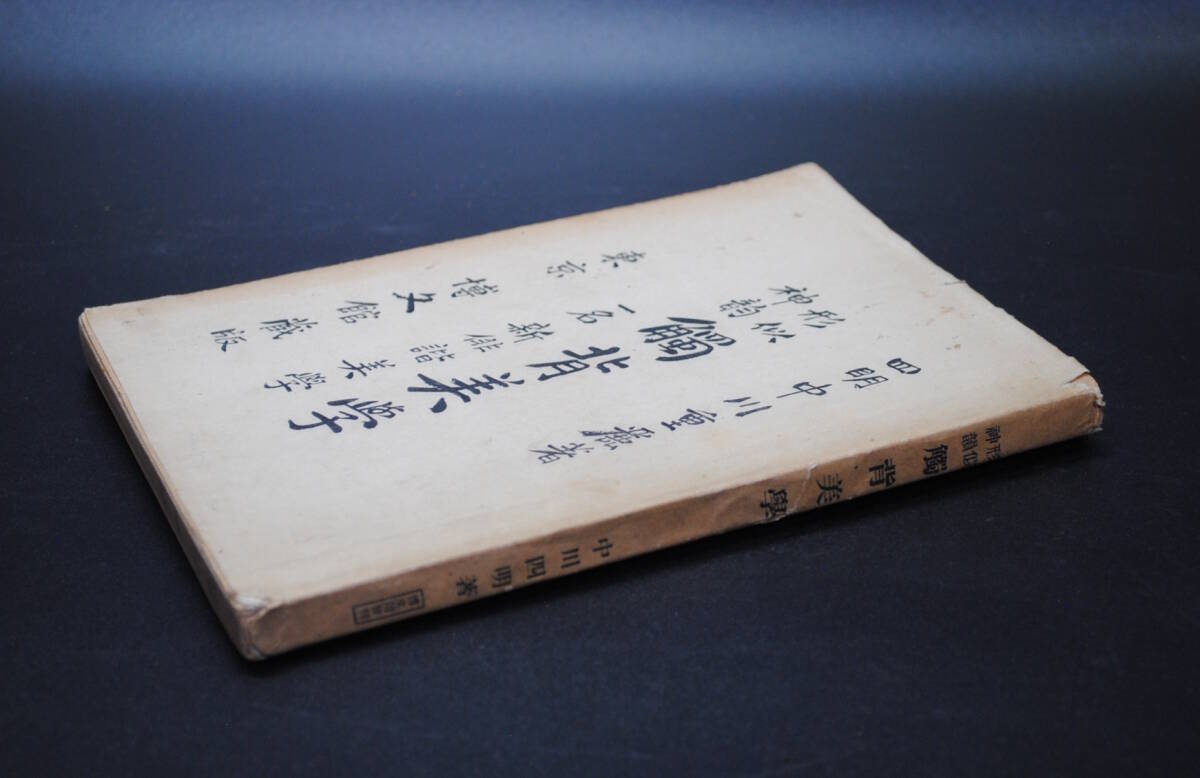 四明 中川重麗著
形似
神韵
觸背美學
一名 新俳諧美學
東京 博文館蔵版
形似
神韻
觸背美學
中川四明著